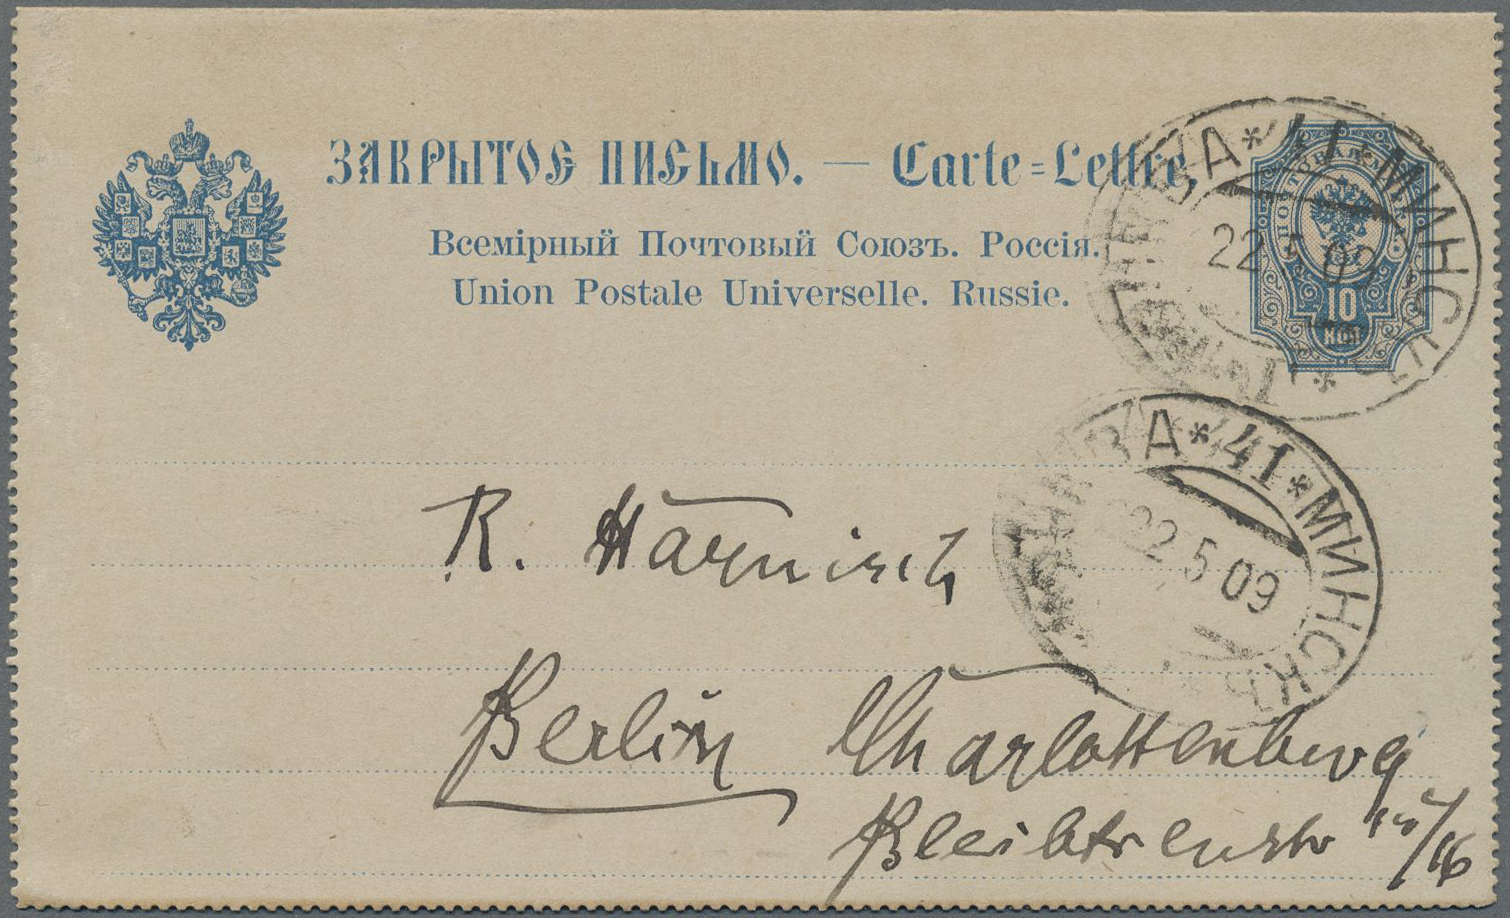 ЗАКРЫТОЕ ПИСЬМО. — Carte-Lettre.
Всемірный Почтовый Союзъ. Россія.
Union Postale Universelle. Russie.
10
КОП
41 * МИНСКЪ
22 5 09
* 41 * МИНСКЪ
22 5 09
R. Harnisch
Berlin Charlottenburg
Bleibtreustr 15/16